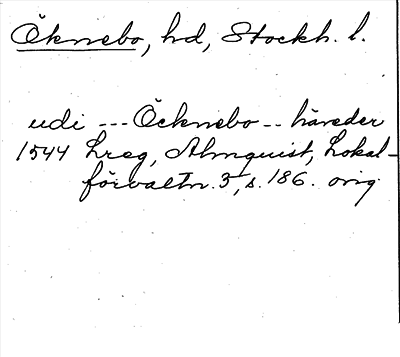 Öknebo, hd, Stockh. l.
udi --- Öcknebo -- häreder
1544 Lreg, Almquist, Lokal-
förvaltn. 3, s. 186. orig